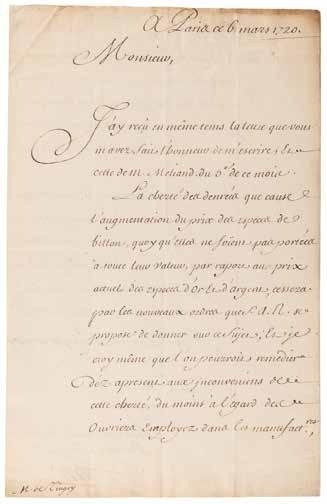 A Paris ce 6 mars 1720.
Monsieur,
J'ay reçu en même tems la lettre que vous
m'avez fait l'honneur de m'escrire, Et
celle de M. Meliand du 5e de ce mois.
La cherté des denrées que cause
l'augmentation du prix des especes de
billon, quoy qu'elles ne soient pas portées
à toute leur valeur, par raport au prix
actuel des especes d'Or Et d'argent, cessera
par les nouveaux ordres que S. A. R. se
propose de donner sur ce sujet; Et je
croy même que l'on pourroit remedier
déz apresent aux inconveniens de
cette cherté, du moins à l'égard des
Ouvriers Employez dans les manufact.res
M. de